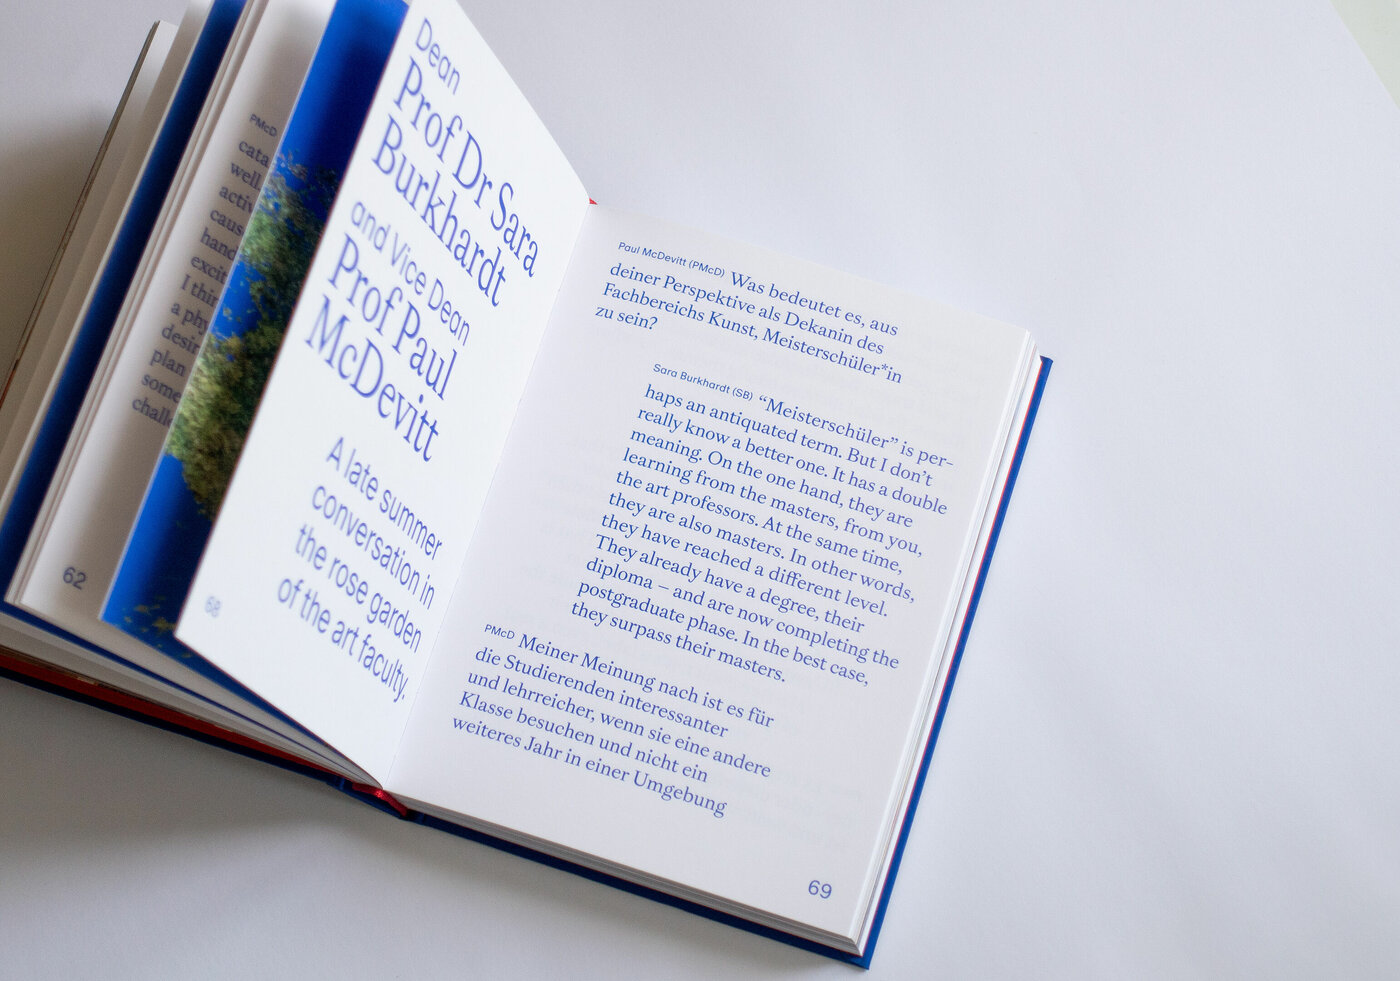 PMcD
well.
hand
I thin
a phy
plan
some
62
Dean
Prof Dr Sara
Burkhardt
and Vice Dean
Prof Paul
McDevitt
A late summer
conversation in
the rose garden
of the art faculty.
68
Paul McDevitt (PMcD) Was bedeutet es, aus
deiner Perspektive als Dekanin des
Fachbereichs Kunst, Meisterschüler*in
zu sein?
Sara Burkhardt (SB) “Meisterschüler” is per-
haps an antiquated term. But I don’t
really know a better one. It has a double
meaning. On the one hand, they are
learning from the masters, from you,
the art professors. At the same time,
they are also masters. In other words,
they have reached a different level.
They already have a degree, their
diploma – and are now completing the
postgraduate phase. In the best case,
they surpass their masters.
PMcD Meiner Meinung nach ist es für
die Studierenden interessanter
und lehrreicher, wenn sie eine andere
Klasse besuchen und nicht ein
weiteres Jahr in einer Umgebung
69